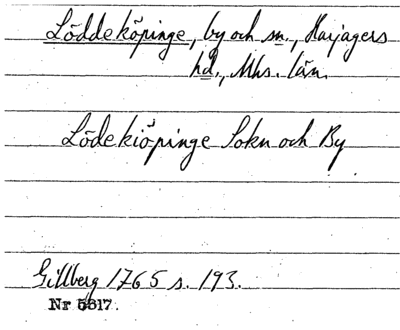 Löddeköpinge, by och sn, Harjagers
hd., Mhs. län.
Lödekiöpinge Sokn och By
Gillberg 1765 s. 193.
Nr 5817.